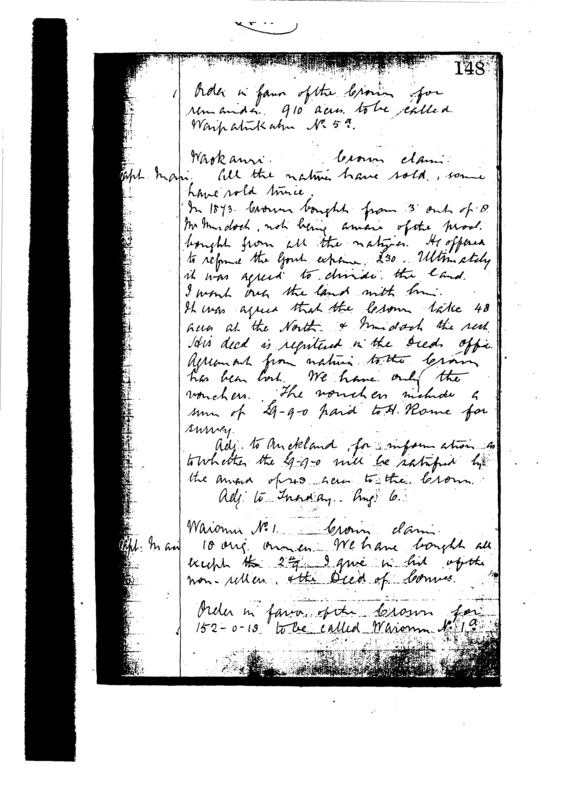 148
Order in favor of the Crown for
remainder. 910 acres to be called
Waipatukahu No 5a.
Waokauri. Crown claim.
Capt. Mair. All the natives have sold, some
have sold twice.
In 1873 Crown bought from 3 out of 8
Mr Murdoch, not being aware of the
bought from all the natives. He offered
to refund the Govt expense, £30. Ultimately
it was agreed to divide the land.
I went over the land with him.
It was agreed that the Crown take 48
acres at the North & Murdoch the rest
His deed is registered in the Deeds office
Agreement from natives to the Crown
has been lost. We have only the
vouchers. The vouchers include a
sum of £9-9-0 paid to H. Rowe for
survey.
Adj. to Auckland for information as
to whether the £9-9-0 will be satisfied by
the award of 43 acres to the Crown.
Adj to Tuesday. Aug 6.
No 1. Crown claim.
Capt. Mair 10 orig. owners. We have bought all
except the 2nd. I give in list of the
non-sellers, & the Deed of Convce.
Order in favor of the Crown for
152-0-13 to be called No 1a